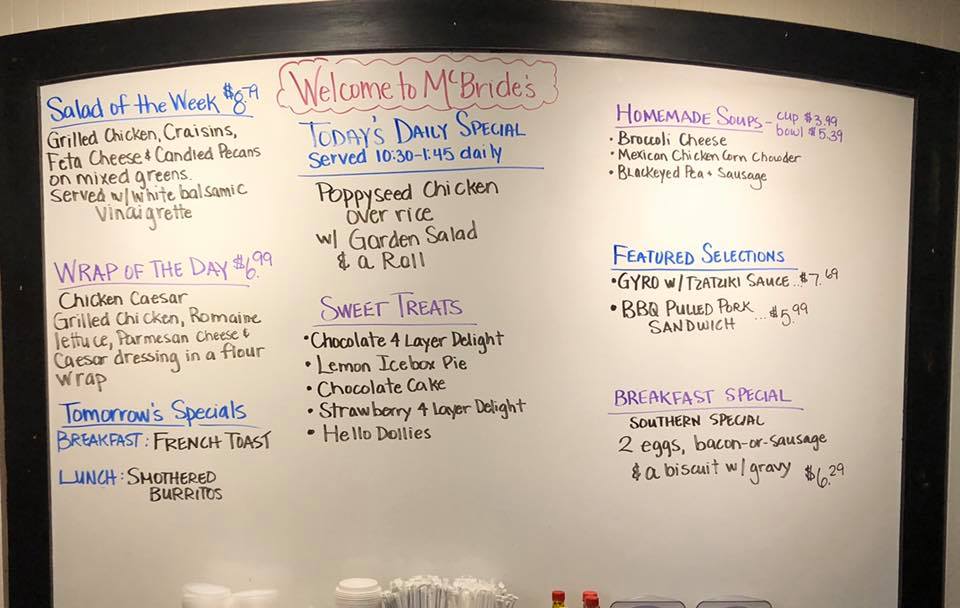 Welcome to McBride's
Salad of the Week $8.79
Grilled Chicken, Craisins,
Feta Cheese & Candied Pecans
on mixed greens.
Served w/ white balsamic
Vinaigrette
WRAP OF THE DAY $6.99
Chicken Caesar
Grilled Chicken, Romaine
lettuce, Parmesan Cheese &
Caesar dressing in a flour
wrap
Tomorrow's Specials
BREAKFAST: FRENCH TOAST
LUNCH: SMOTHERED
BURRITOS
TODAY'S DAILY SPECIAL
Served 10:30-1:45 daily
Poppyseed Chicken
over rice
w/ Garden Salad
& a Roll
SWEET TREATS
• Chocolate 4 Layer Delight
• Lemon Icebox Pie
• Chocolate Cake
• Strawberry 4 Layer Delight
• Hello Dollies
HOMEMADE SOUPS - cup $3.99
bowl $5.39
• Broccoli Cheese
• Mexican Chicken Corn Chowder
• Blackeyed Pea + Sausage
FEATURED SELECTIONS
• GYRO W/ TZATZIKI SAUCE...$7.69
• BBQ PULLED PORK
SANDWICH ...$5.99
BREAKFAST SPECIAL
SOUTHERN SPECIAL
2 eggs, bacon-or-sausage
& a biscuit w/ gravy $6.29